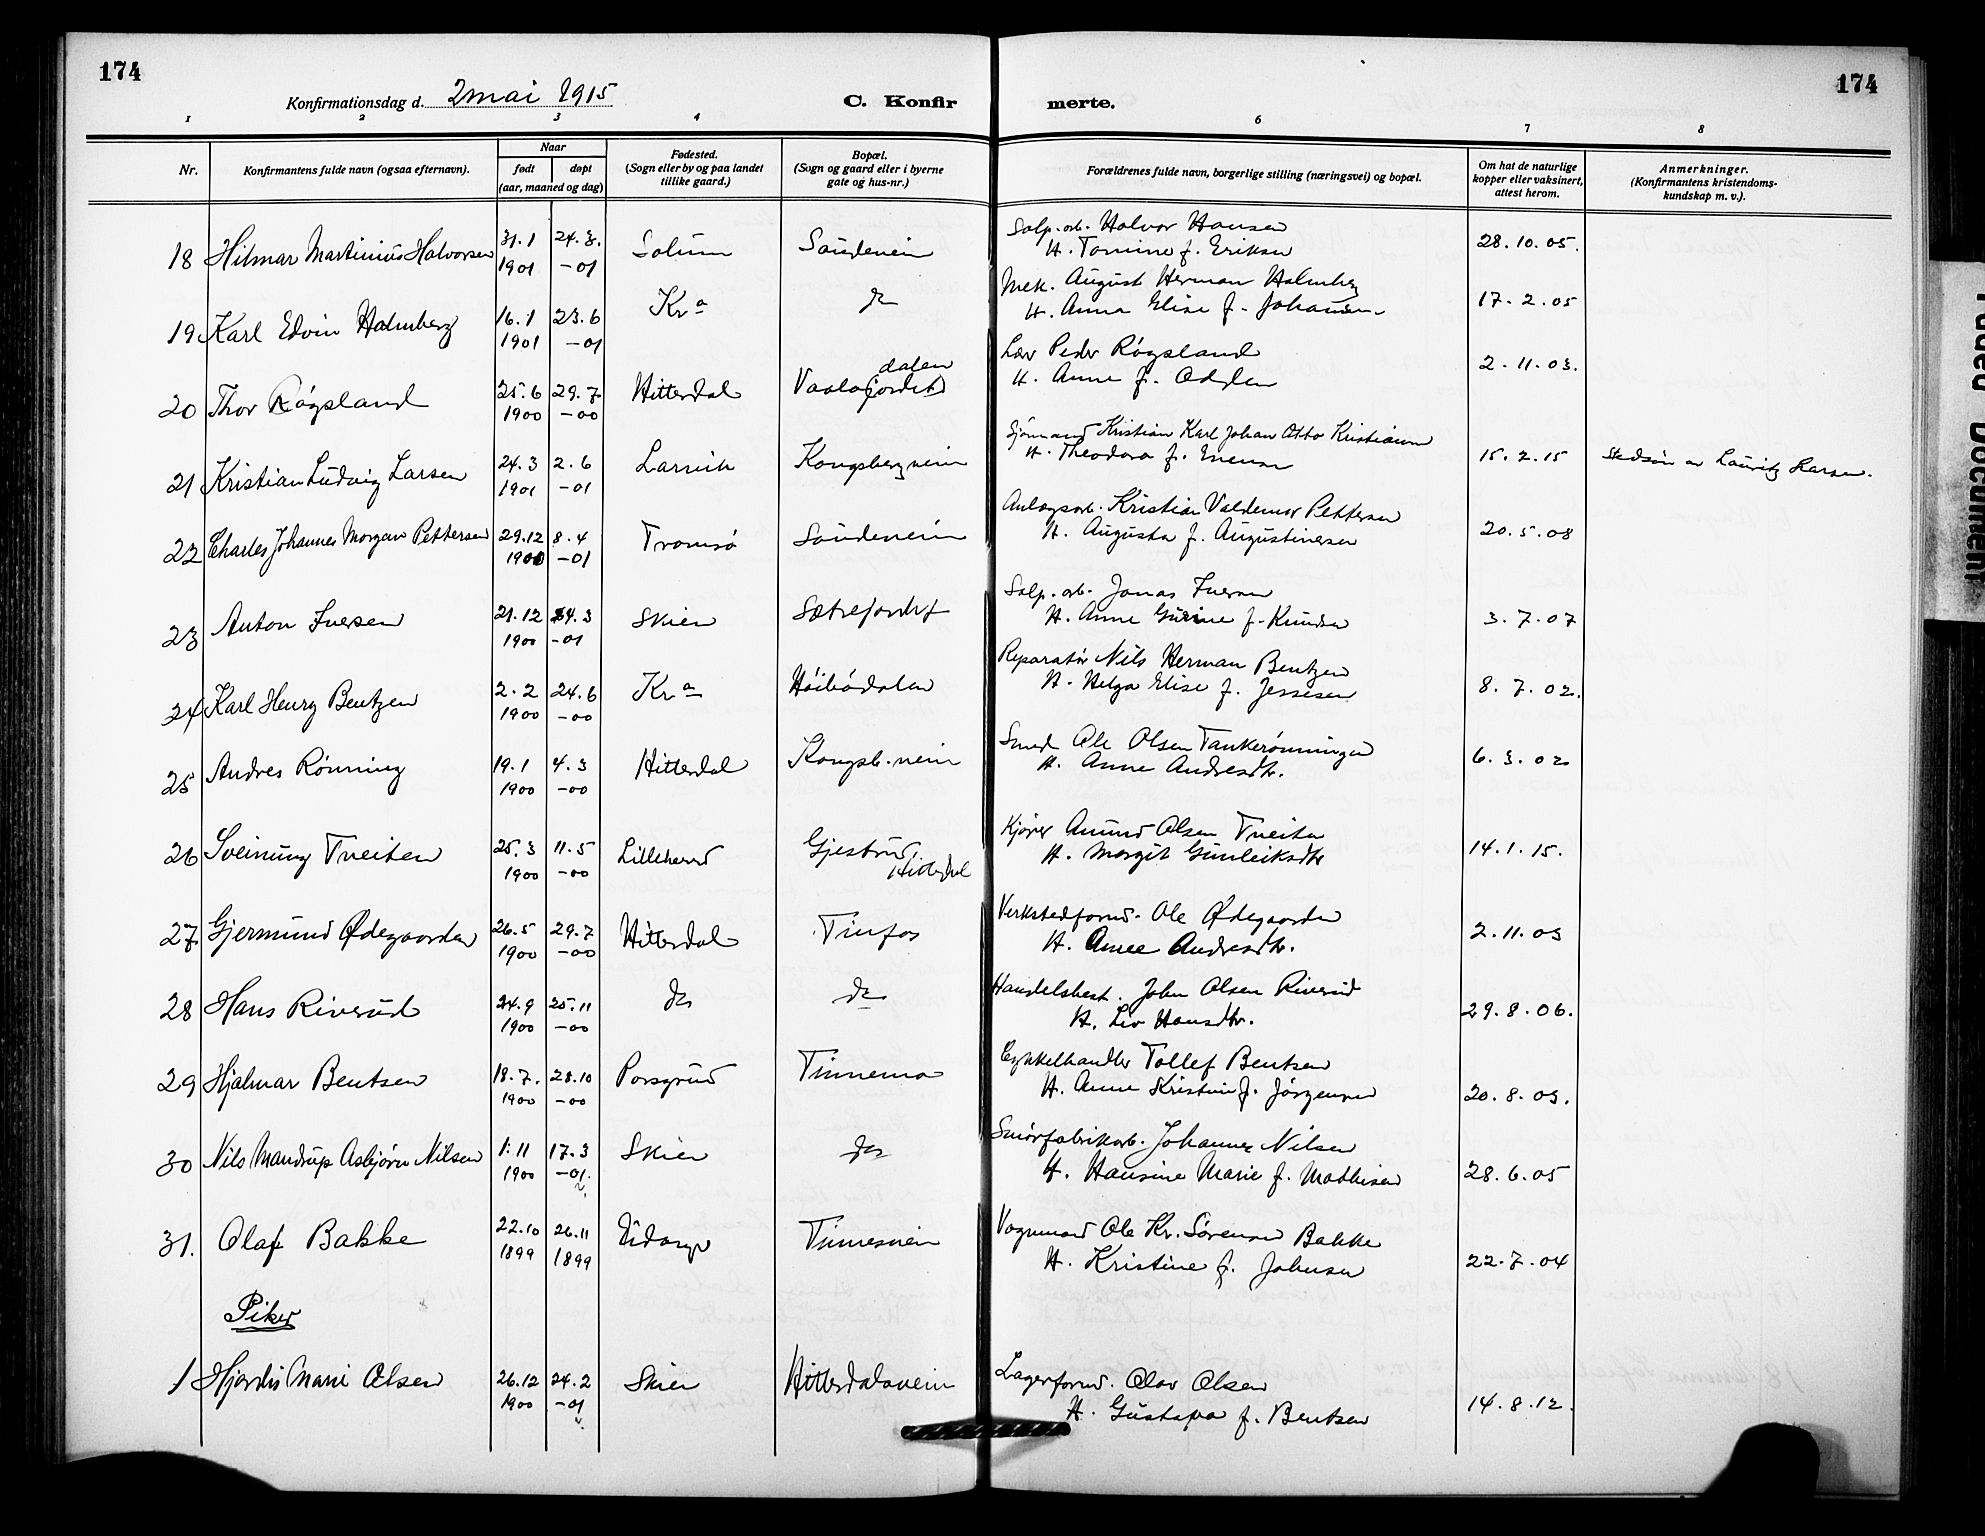 174
174
Konfirmationsdag d. 2 mai 1915
C. Konfir merte.
1 2 3 4 5 6 7 8
Nr. Konfirmantens fulde navn (ogsaa efternavn). Naar født døpt (aar, maaned og dag) Fødested. (Sogn eller by og paa landet tillike gaard.) Bopæl. (Sogn og gaard eller i byerne gate og hus-nr.) Forældrenes fulde navn, borgerlige stilling (næringsvei) og bopæl. Om hat de naturlige kopper eller vaksinert, attest herom. Anmerkninger. (Konfirmantens kristendoms-kundskap m. v.).
18 Hilmar Martinius Halvorsen 31.1 1901 24.3. -01 Solum Saudeveien Salp. arb. Halvor Hansen
H. Tomine f. Eriksen 28.10.05.
19 Karl Edvin Halmberg 16.1 1901 23.6 -01 Kra do Mek. August Herman Halmberg
H. Anna Elise f. Johansen 17.2.05
20 Thor Røgsland 25.6 1900 29.7 -00 Hitterdal dalen Lær Peder Røgsland
H. Anne f. 2.11.03.
21 Kristian Ludvig Larsen 24.3 1901 2.6 -01 Larvik Kongsbergveien Sjømand Kristian Karl Johan Otto Kristiansen
H. Theodora f. Evensen 15.2.15 Stedsøn av Lauritz Larsen.
22 Charles Johannes Morgan Pettersen 29.12 1900 8.4 -01 Tromsø Saudeveien Anlægsarb. Kristian Valdemar Pettersen
H. Augusta f. Augustinesen 20.5.08
23 Anton Iversen 21.12 1900 24.3 -01 Skien Sætrefordet Salp. arb. Jonas Iversen
H. Anne Gurine f. Knudsen 3.7.07
24 Karl Henry Bentzen 2.2 1900 24.6 -00 Kra Høibødalen Reparatør Nils Herman Bentzen
H. Helga Elise f. Jessesen 8.7.02.
25 Andres Rønning 19.1 1900 4.3 -00 Hitterdal Kongsb. veien Smed Ole Olsen Tankerønningen
H. Anne Andresdtr. 6.3.02
26 Sveinung Tveiten 25.3 1900 11.5 -00 Lilleherred Gjestrud, Hitterdal Kjører Amund Olsen Tveiten
H. Margit Gunleiksdtr 14.1.15.
27 Gjermund Ødegaarden 26.5 1900 29.7 -00 Hitterdal Tinfos Verkstedformd. Ole Ødegaarden
H. Anne Andresdtr. 2.11.03
28 Hans Riverud 24.9 1900 25.11 -00 do do Handelsbest. John Olsen Riverud
H. Liv Hansdtr. 29.8.06.
29 Hjalmar Bentsen 18.7. 1900 28.10 -00 Porsgrund Tinnemo Cykkelhandler Tollef Bentsen
H. Anne Kristine f. Jørgensen 20.8.03.
30 Nils Mandrup Asbjørn Nilsen 1.11 1900 17.3 -01. Skien do Smørfabrikarb. Johannes Nilsen
H. Hansine Marie f. Mathisen 28.6.05
31. Olaf Bakke 22.10 1899 26.11 1899 Eidanger Tinnesveien Vognmand Ole Kr. Sørensen Bakke
H. Kristine f. Johnsen 22.7.04
Piker
1 Hjørdis Marie Olsen 26.12 1900 24.2 -01 Skien Hitterdalsveien Lagerformd. Olav Olsen
H. Gustava f. Bentsen 14.8.12.